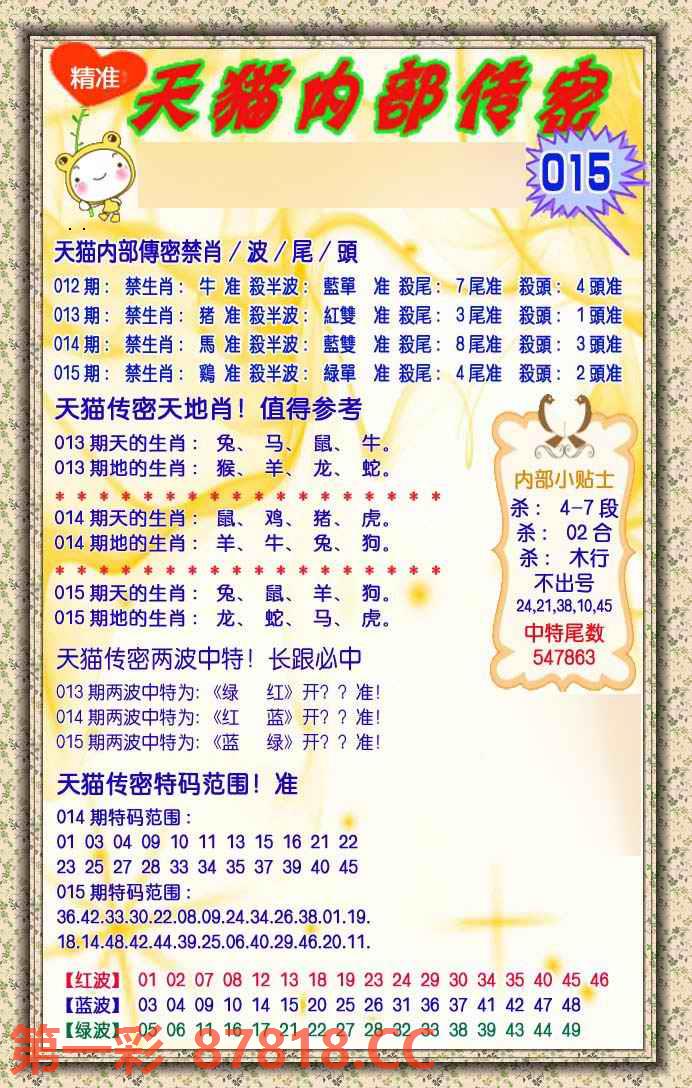 精准
天猫内部传密
015
天猫内部傳密禁肖/波/尾/頭
012期： 禁生肖： 牛 准 殺半波： 藍單 准 殺尾： 7尾准 殺頭： 4頭准
013期： 禁生肖： 猪 准 殺半波： 紅雙 准 殺尾： 3尾准 殺頭： 1頭准
014期： 禁生肖： 馬 准 殺半波： 藍雙 准 殺尾： 8尾准 殺頭： 3頭准
015期： 禁生肖： 鷄 准 殺半波： 緑單 准 殺尾： 4尾准 殺頭： 2頭准
天猫传密天地肖！值得参考
013期天的生肖： 兔、 马、 鼠、 牛。
013期地的生肖： 猴、 羊、 龙、 蛇。
* * * * * * * * * * * * * * * * *
014期天的生肖： 鼠、 鸡、 猪、 虎。
014期地的生肖： 羊、 牛、 兔、 狗。
* * * * * * * * * * * * * * * * *
015期天的生肖： 兔、 鼠、 羊、 狗。
015期地的生肖： 龙、 蛇、 马、 虎。
内部小贴士
杀： 4-7段
杀： 02合
杀： 木行
不出号
24,21,38,10,45
中特尾数
547863
天猫传密两波中特！长跟必中
013期两波中特为:《绿 红》开？？准！
014期两波中特为:《红 蓝》开？？准！
015期两波中特为:《蓝 绿》开？？准！
天猫传密特码范围！准
014期特码范围：
01 03 04 09 10 11 13 15 16 21 22
23 25 27 28 33 34 35 37 39 40 45
015期特码范围：
36.42.33.30.22.08.09.24.34.26.38.01.19.
18.14.48.42.44.39.25.06.40.29.46.20.11.
【红波】 01 02 07 08 12 13 18 19 23 24 29 30 34 35 40 45 46
【蓝波】 03 04 09 10 14 15 20 25 26 31 36 37 41 42 47 48
【绿波】 05 06 11 16 17 21 22 27 28 32 33 38 39 43 44 49
第一彩 87818.CC